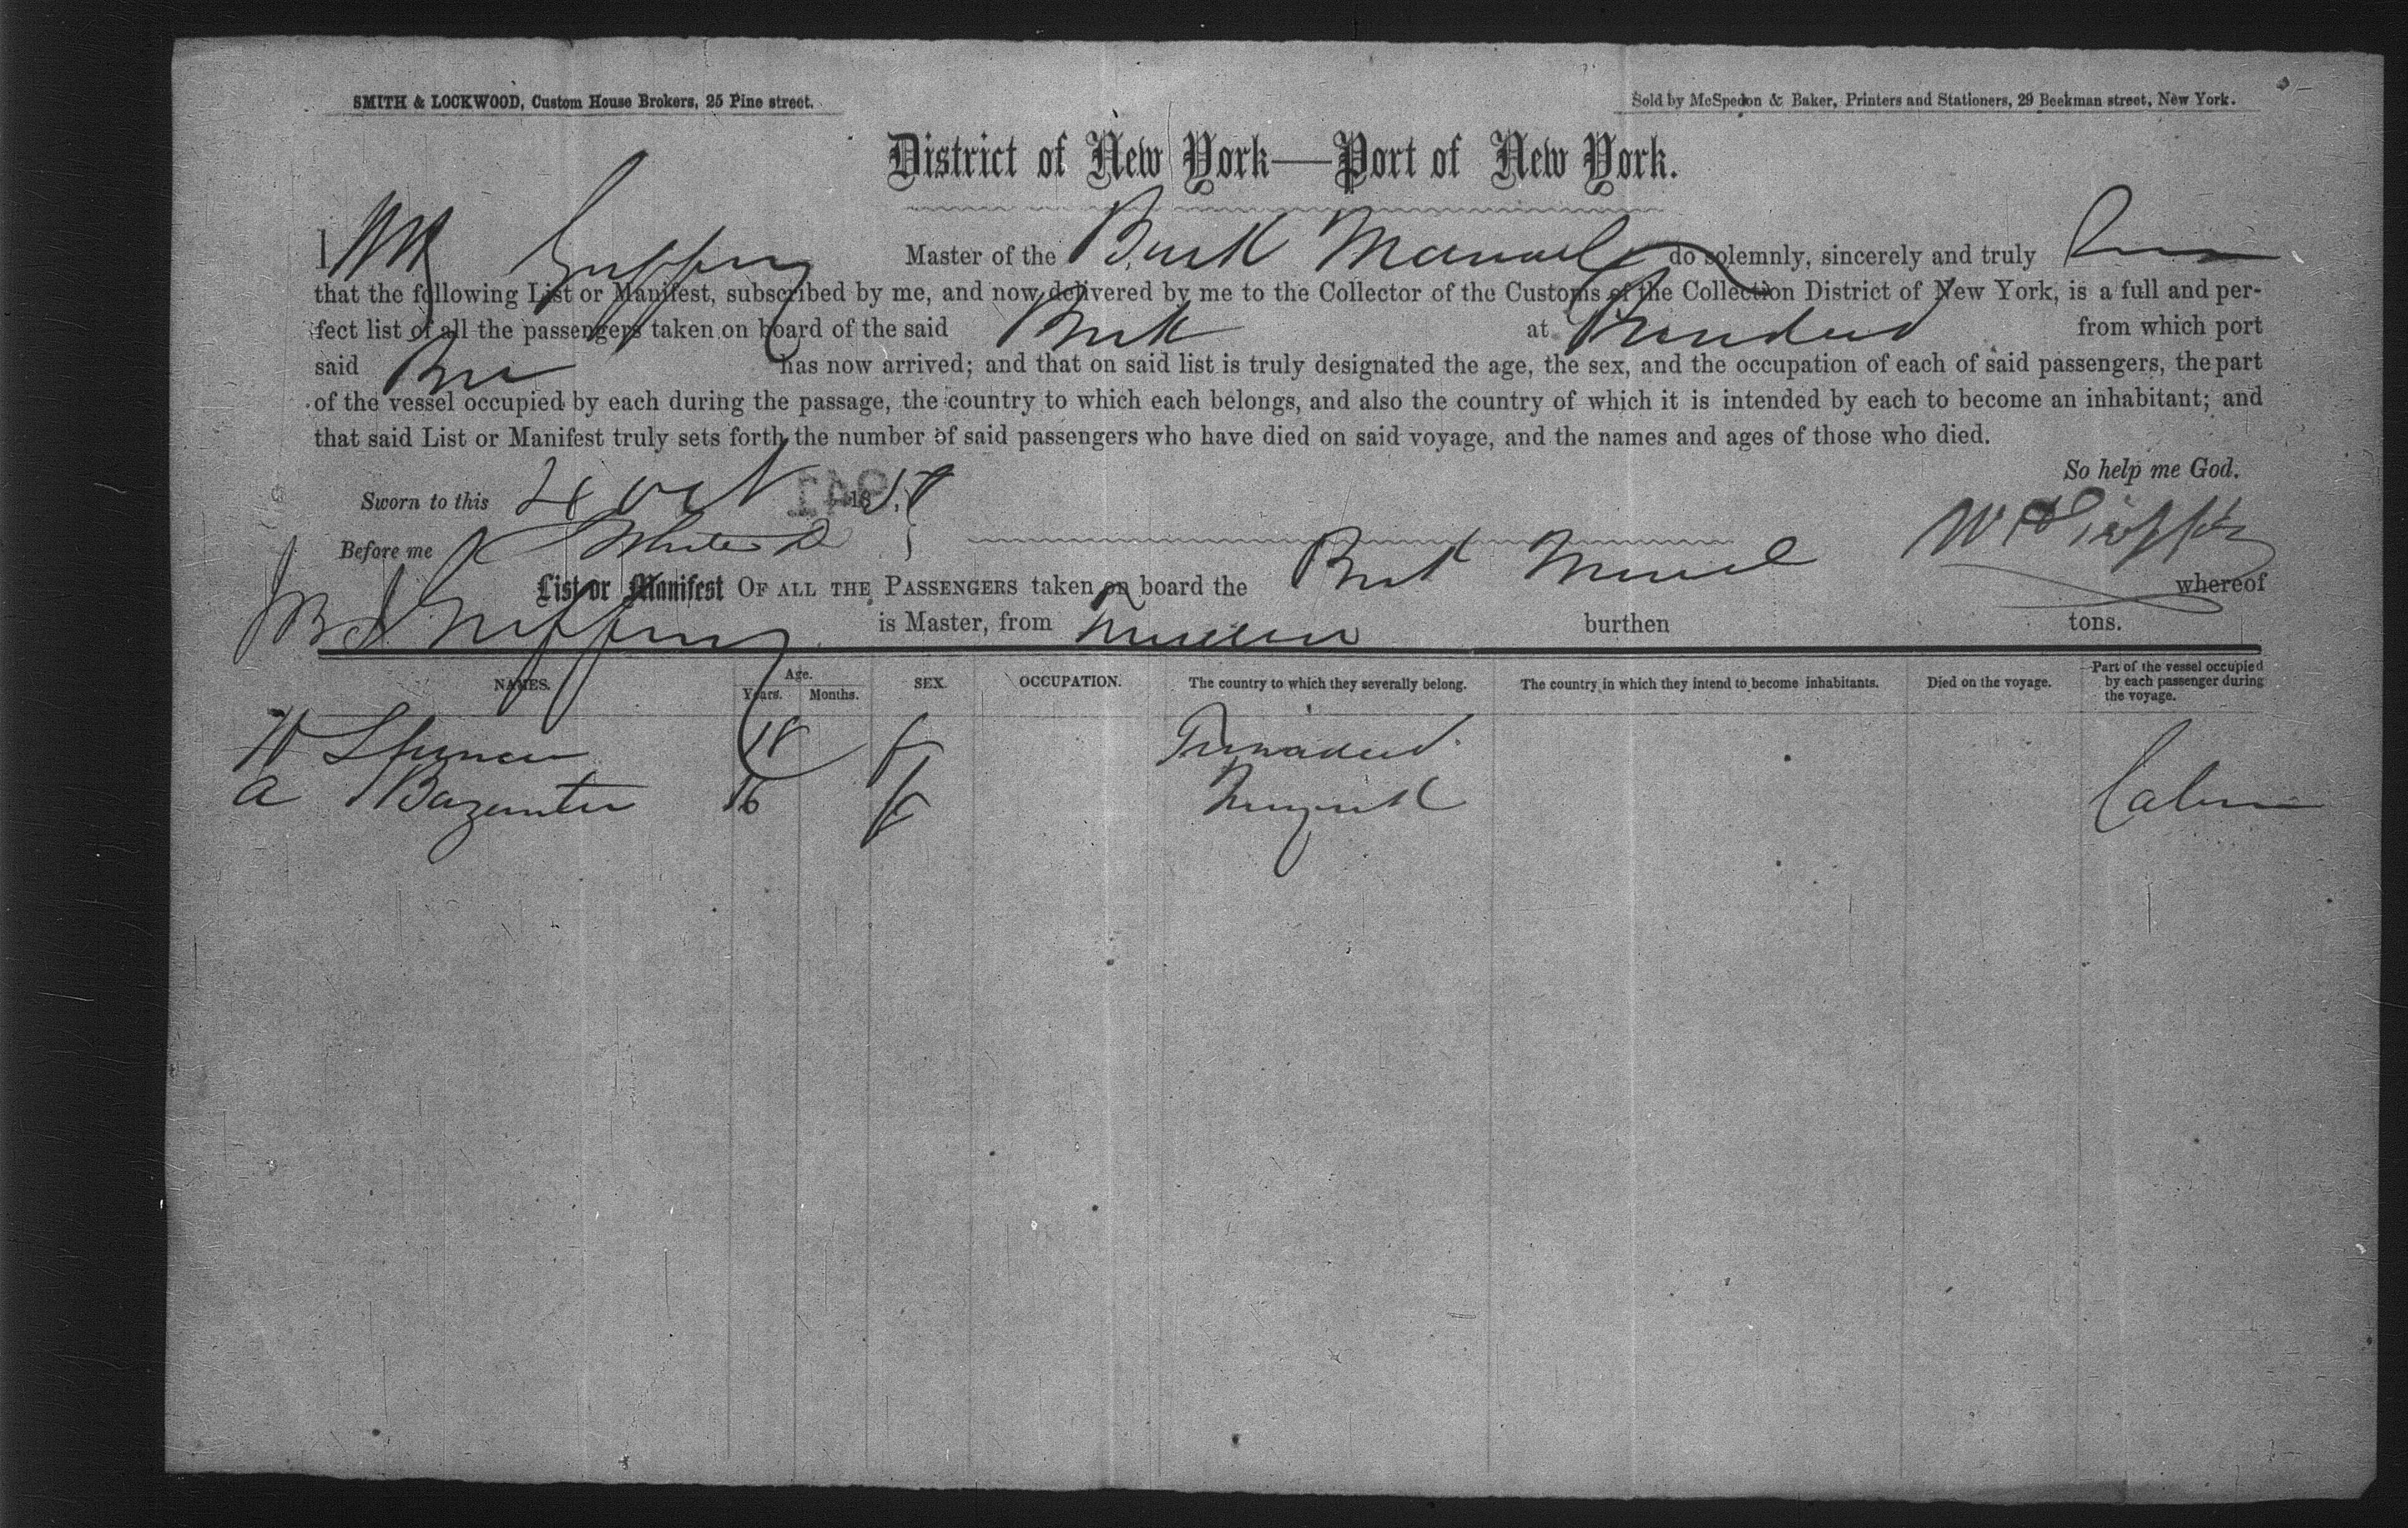 SMITH & LOCKWOOD, Custom House Brokers, 25 Pine street.
Sold by McSpedon & Baker, Printers and Stationers, 29 Beekman street, New York.
District of New York—Port of New York.
I Master of the Bark do solemnly, sincerely and truly
that the following List or Manifest, subscribed by me, and now delivered by me to the Collector of the Customs of the Collection District of New York, is a full and per-
fect list of all the passengers taken on board of the said Bark at from which port
said has now arrived; and that on said list is truly designated the age, the sex, and the occupation of each of said passengers, the part
of the vessel occupied by each during the passage, the country to which each belongs, and also the country of which it is intended by each to become an inhabitant; and
that said List or Manifest truly sets forth the number of said passengers who have died on said voyage, and the names and ages of those who died.
So help me God.
Sworn to this 4 Oct 185
Before me
List or Manifest OF ALL THE PASSENGERS taken on board the Bark whereof
is Master, from burthen tons.
NAMES. Age. Years. Months. SEX. OCCUPATION. The country to which they severally belong. The country in which they intend to become inhabitants. Died on the voyage. Part of the vessel occupied by each passenger during the voyage.
Spencer 18 f Trinidad
A 16 f Cabin